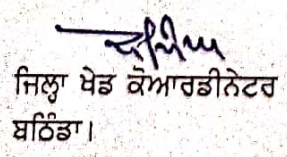 ਜਿਲ੍ਹਾ ਖੇਡ ਕੋਆਰਡੀਨੇਟਰ
ਬਠਿੰਡਾ।